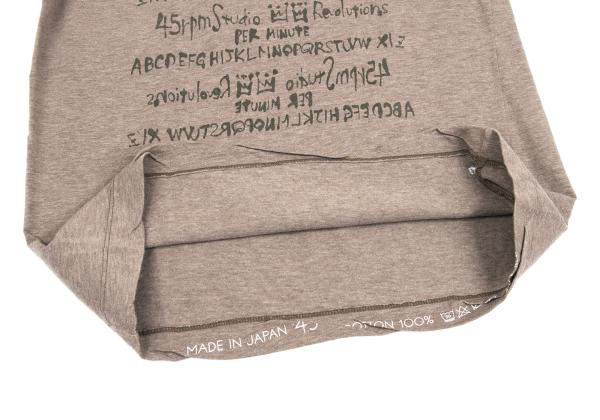 45rpm Studio Revolutions
PER MINUTE
ABCDEFGHIJKLMNOPQRSTUVW XIZ
45rpm Studio Revolutions
PER MINUTE
ABCDEFGHIJKLMNOPQRSTUVW XIZ
MADE IN JAPAN 45 COTTON 100%